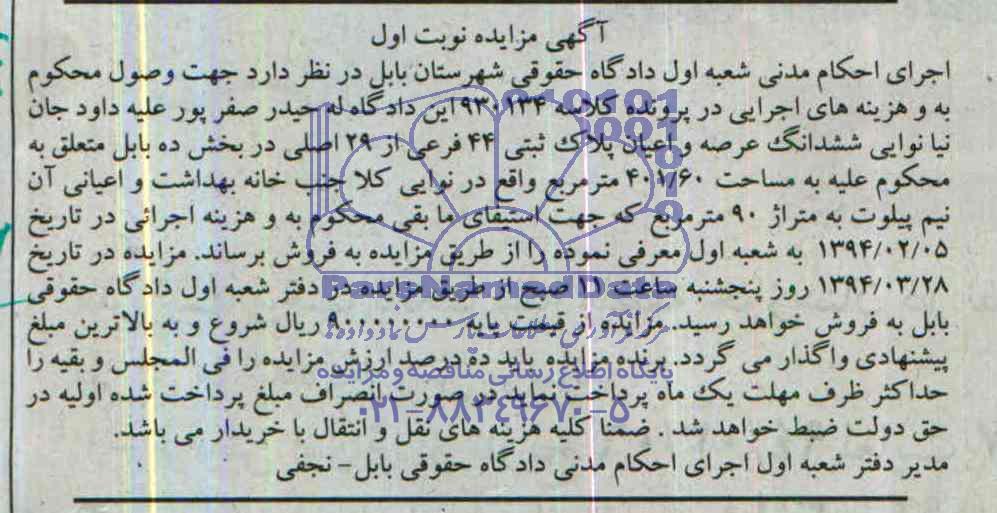 آگهی مزایده نوبت اول
اجرای احکام مدنی شعبه اول دادگاه حقوقی شهرستان بابل در نظر دارد جهت وصول محکوم
به و هزینه های اجرایی در پرونده کلاسه ۹۳۰۱۳۴ این دادگاه له حیدر صفر پور علیه داود جان
نیا نوایی ششدانگ عرصه و اعیان پلاک ثبتی ۴۴ فرعی از ۲۹ اصلی در بخش ده بابل متعلق به
محکوم علیه به مساحت ۴۰۱/۶۰ مترمربع واقع در نوایی کلا جنب خانه بهداشت و اعیانی آن
نیم پیلوت به متراژ ۹۰ مترمربع که جهت استیفای ما بقی محکوم به و هزینه اجرائی در تاریخ
۱۳۹۴/۰۲/۰۵ به شعبه اول معرفی نموده را از طریق مزایده به فروش برساند. مزایده در تاریخ
۱۳۹۴/۰۳/۲۸ روز پنجشنبه ساعت ۱۱ صبح از طریق مزایده در دفتر شعبه اول دادگاه حقوقی
بابل به فروش خواهد رسید. مزایده از قیمت پایه ریال شروع و به بالاترین مبلغ
پیشنهادی واگذار می گردد. برنده مزایده باید ده درصد ارزش مزایده را فی المجلس و بقیه را
حداکثر ظرف مهلت یک ماه پرداخت نماید در صورت انصراف مبلغ پرداخت شده اولیه در
حق دولت ضبط خواهد شد . ضمنا کلیه هزینه های نقل و انتقال با خریدار می باشد.
مدیر دفتر شعبه اول اجرای احکام مدنی دادگاه حقوقی بابل- نجفی
ParsNamadData
پایگاه اطلاع رسانی مناقصه و مزایده
۰۲۱-۸۸۳۴۹۶۷۰-۵